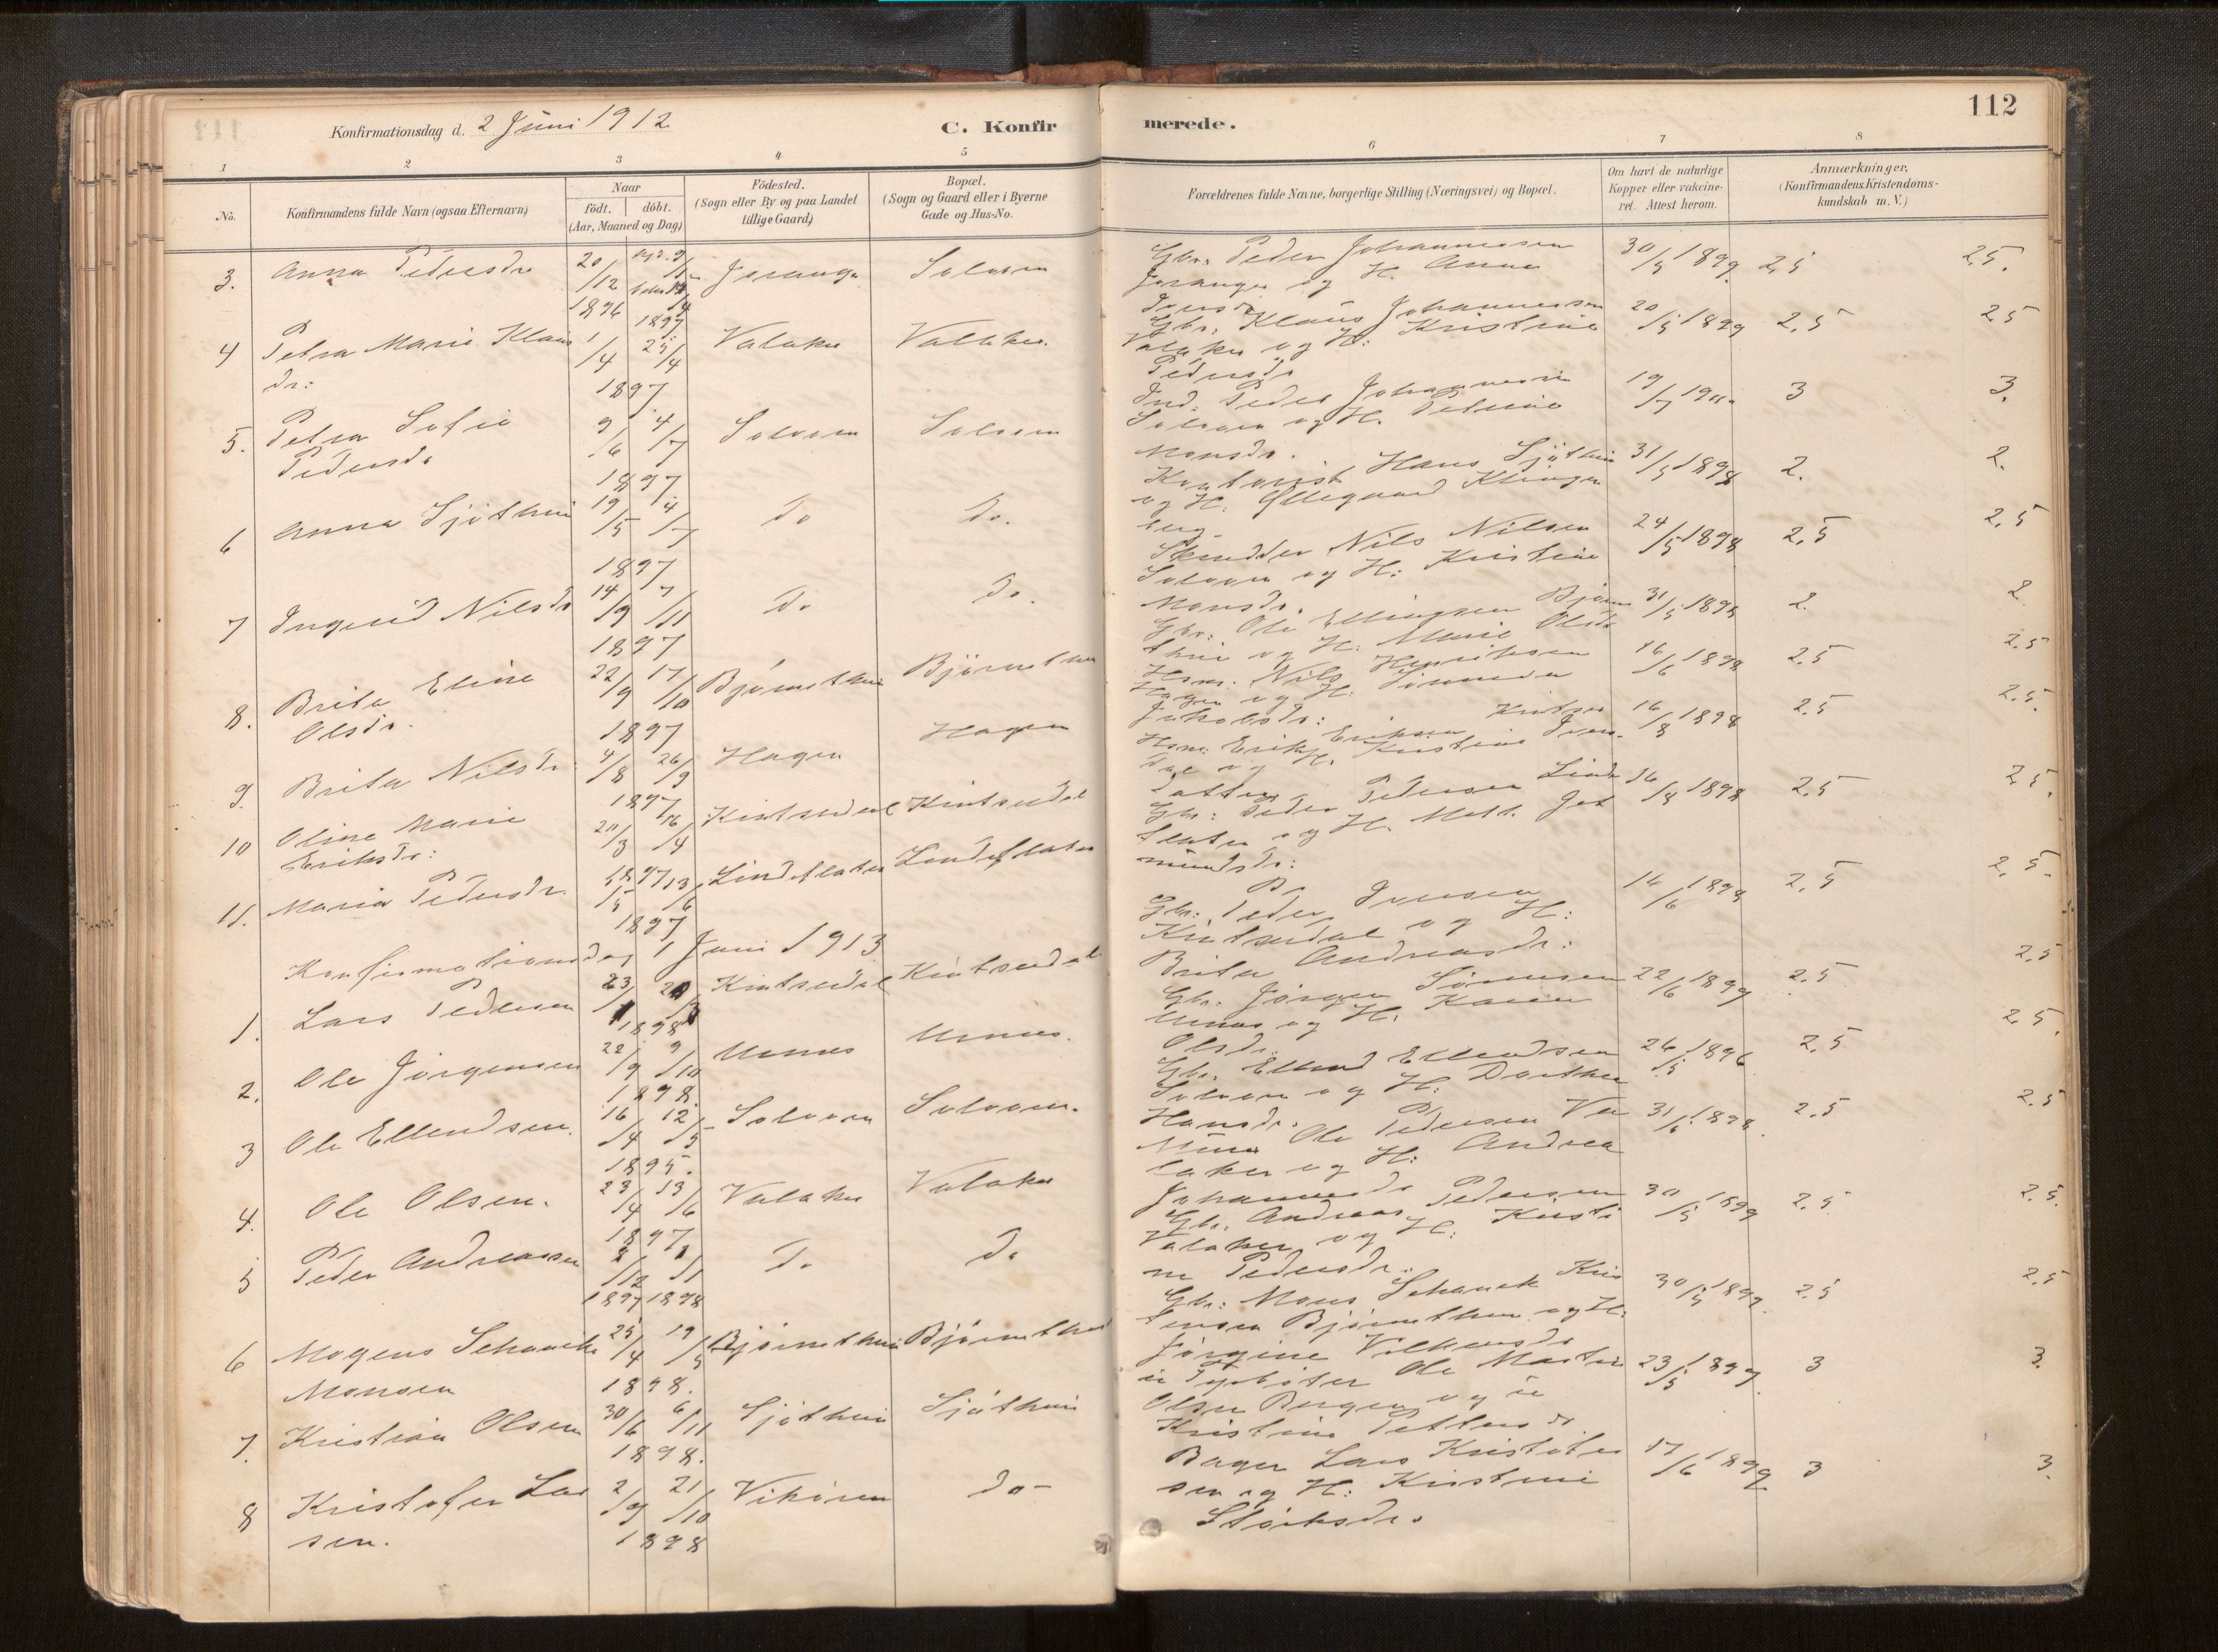 112
Konfirmationsdag d. 2 Juni 1912
C. Konfir
merede.
1 2 3 4 5 6 7 8
No.
Konfirmandens fulde Navn (ogsaa Efternavn)
Naar
födt. döbt.
(Aar, Maaned og Dag)
Födested.
(Sogn eller By og paa Landet
tillige Gaard)
Bopæl.
(Sogn og Gaard eller i Byerne
Gade og Hus-No.
Forældrenes fulde Navne, borgerlige Stilling (Næringsvei) og Bopæl.
Om havt de naturlige
Kopper eller vakcine-
ret. Attest herom.
Anmærkninger.
(Konfirmandens Kristendoms-
kundskab m. V.)
3. Anna Pedersdr 20/12 1896 Joranger Solvorn
Gbr. Peder Johannessen 30/5 1899 2,5 2,5.
Joranger og H. Anna
4 Petra Marie Klaus 1/4 25/4 Valaker Vallaker.
dr: 1897
Gbr. Klaus Johannessen 20/5 1899 2,5 2,5
Valaker og H: Kristine
Pedersdr
5. Petra Sofie 9/6 4/7 Solvorn Solvorn
Pedersdr 1897
Ind. Peder Johannessen 19/7 3 3.
Solvorn og H. Petrine
Monsdr.
6 Anna Sjøthun 19/5 4/7 do do.
1897
Kontorist Hans Sjøthun 31/5 1898 2. 2.
og H. Øllegaard Klingen
berg
7 Ingerid Nilsdr 14/9 7/11 do do.
1897
Skredder Nils Nilsen 24/5 1898 2,5 2,5
Solvorn og H: Kristine
Monsdr.
8. Brita Eline 22/9 17/10 Bjørnethun Bjørnethun
Olsdr. 1897
Gbr: Ole Ellingsen Bjørne 31/5 1898 2. 2.
thun og H: Marie Olsdr
9. Brita Nilsdr. 4/8 26/9 Hagen Hagen
1897
Hsm: Nils Henriksen 16/6 1898 2,5 2,5
Hagen og H:
Jakobsdr:
10 Oline Marie 20/3 16/4 Kintsedal Kintsedal
Eriksdr: 1897
Hsm: Erik Eriksen Kintse 16/8 1898 2,5 2,5.
dal og H. Kristine Ivers-
datter
11. Maria Pedersdr. /5 13/6 Lindeflaten Lindeflaten
1897
Gbr: Peder Pedersen Linde 16/8 1898 2,5 2,5.
flaten og H. Mett. Jet
mundsdr:
Konfirmationsdag 1 Juni 1913
1. Lars Pedersen 23/1 Kintsedal Kintsedal
1898
Gbr: Peder Iversen 16/6 1898 2,5 2,5.
Kintsedal og H:
Brita Andreasdr:
2. Ole Jørgensen 22/9 9/10 Urnes Urnes.
1898.
Gbr. Jørgen Sörensen 22/6 1899 2,5 2,5
Urnes og H. Karen
Olsdr.
3 Ole Ellendsen. 16/4 12/5 Solvorn Solvorn.
1895.
Gbr. Ellend Ellendsen 26/5 1896 2,5 2,5.
Solvorn og H: Dorthea
Hansdr.
4. Ole Olsen. 23/4 13/6 Valaker Valaker
1897
Murer Ole Pedersen Va 31/5 1898. 2,5 2.5
laker og H: Andrea
Johannesdr
5 Peder Andreassen /12 /1 do do
1897 1898
Gbr. Andreas Pedersen 30/5 1899 2,5. 2,5.
Valaker og H: Kristi
ne Pedersdr.
6 Mogens Schanche 25/4 19/5 Bjørnethun Bjørnethun
Monsen 1898.
Gbr: Mons Schanck Kris 30/5 1899. 2,5 2,5
tensen Bjørnethun og H:
Jørgine Vilhemsdr
7. Kristian Olsen 30/6 6/11 Sjøthun Sjøthun
1898.
Ole Martin 23/5 1899. 3 3.
Olsen Bergen og
Kristine Pettersdr
8 Kristofer Lar 2/9 21/10 Vikøren do-
sen. 1898
Bager Lars Kristofer 17/6 1899 3 3.
sen og H: Kristine
Størksdr.